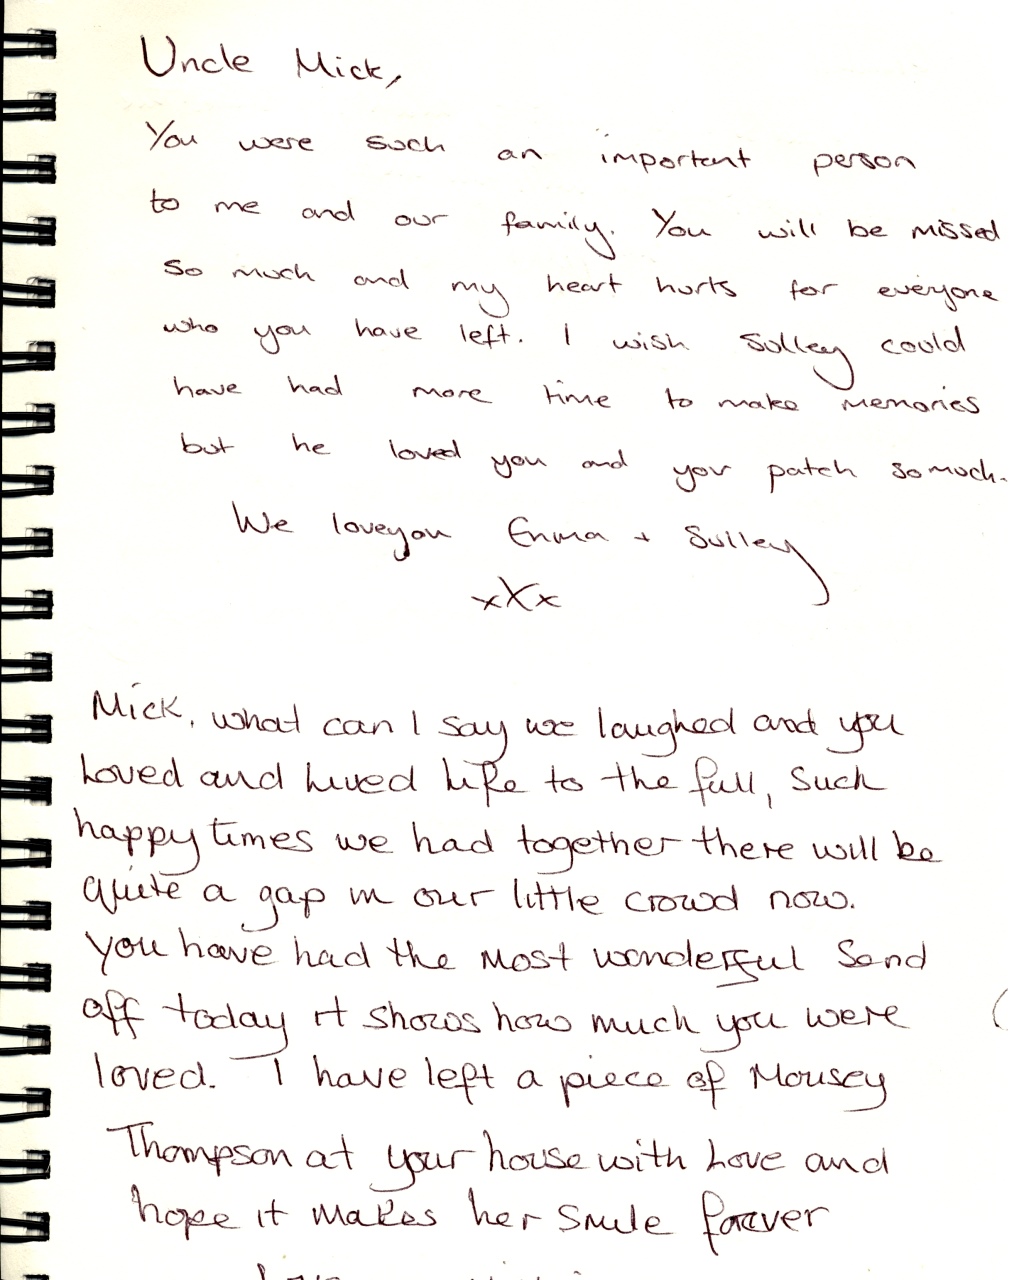 Uncle Mick,
You were such an important person
to me and our family. You will be missed
so much and my heart hurts for everyone
who you have left. I wish Sulley could
have had more time to make memories
but he loved you and your patch so much.
We love you Emma + Sulley
xXx
Mick, what can I say we laughed and you
Loved and lived life to the full, such
happy times we had together there will be
quite a gap in our little crowd now.
you have had the most wonderful send
off today it shows how much you were
loved. I have left a piece of Mousey
Thompson at your house with Love and
hope it makes her smile forever